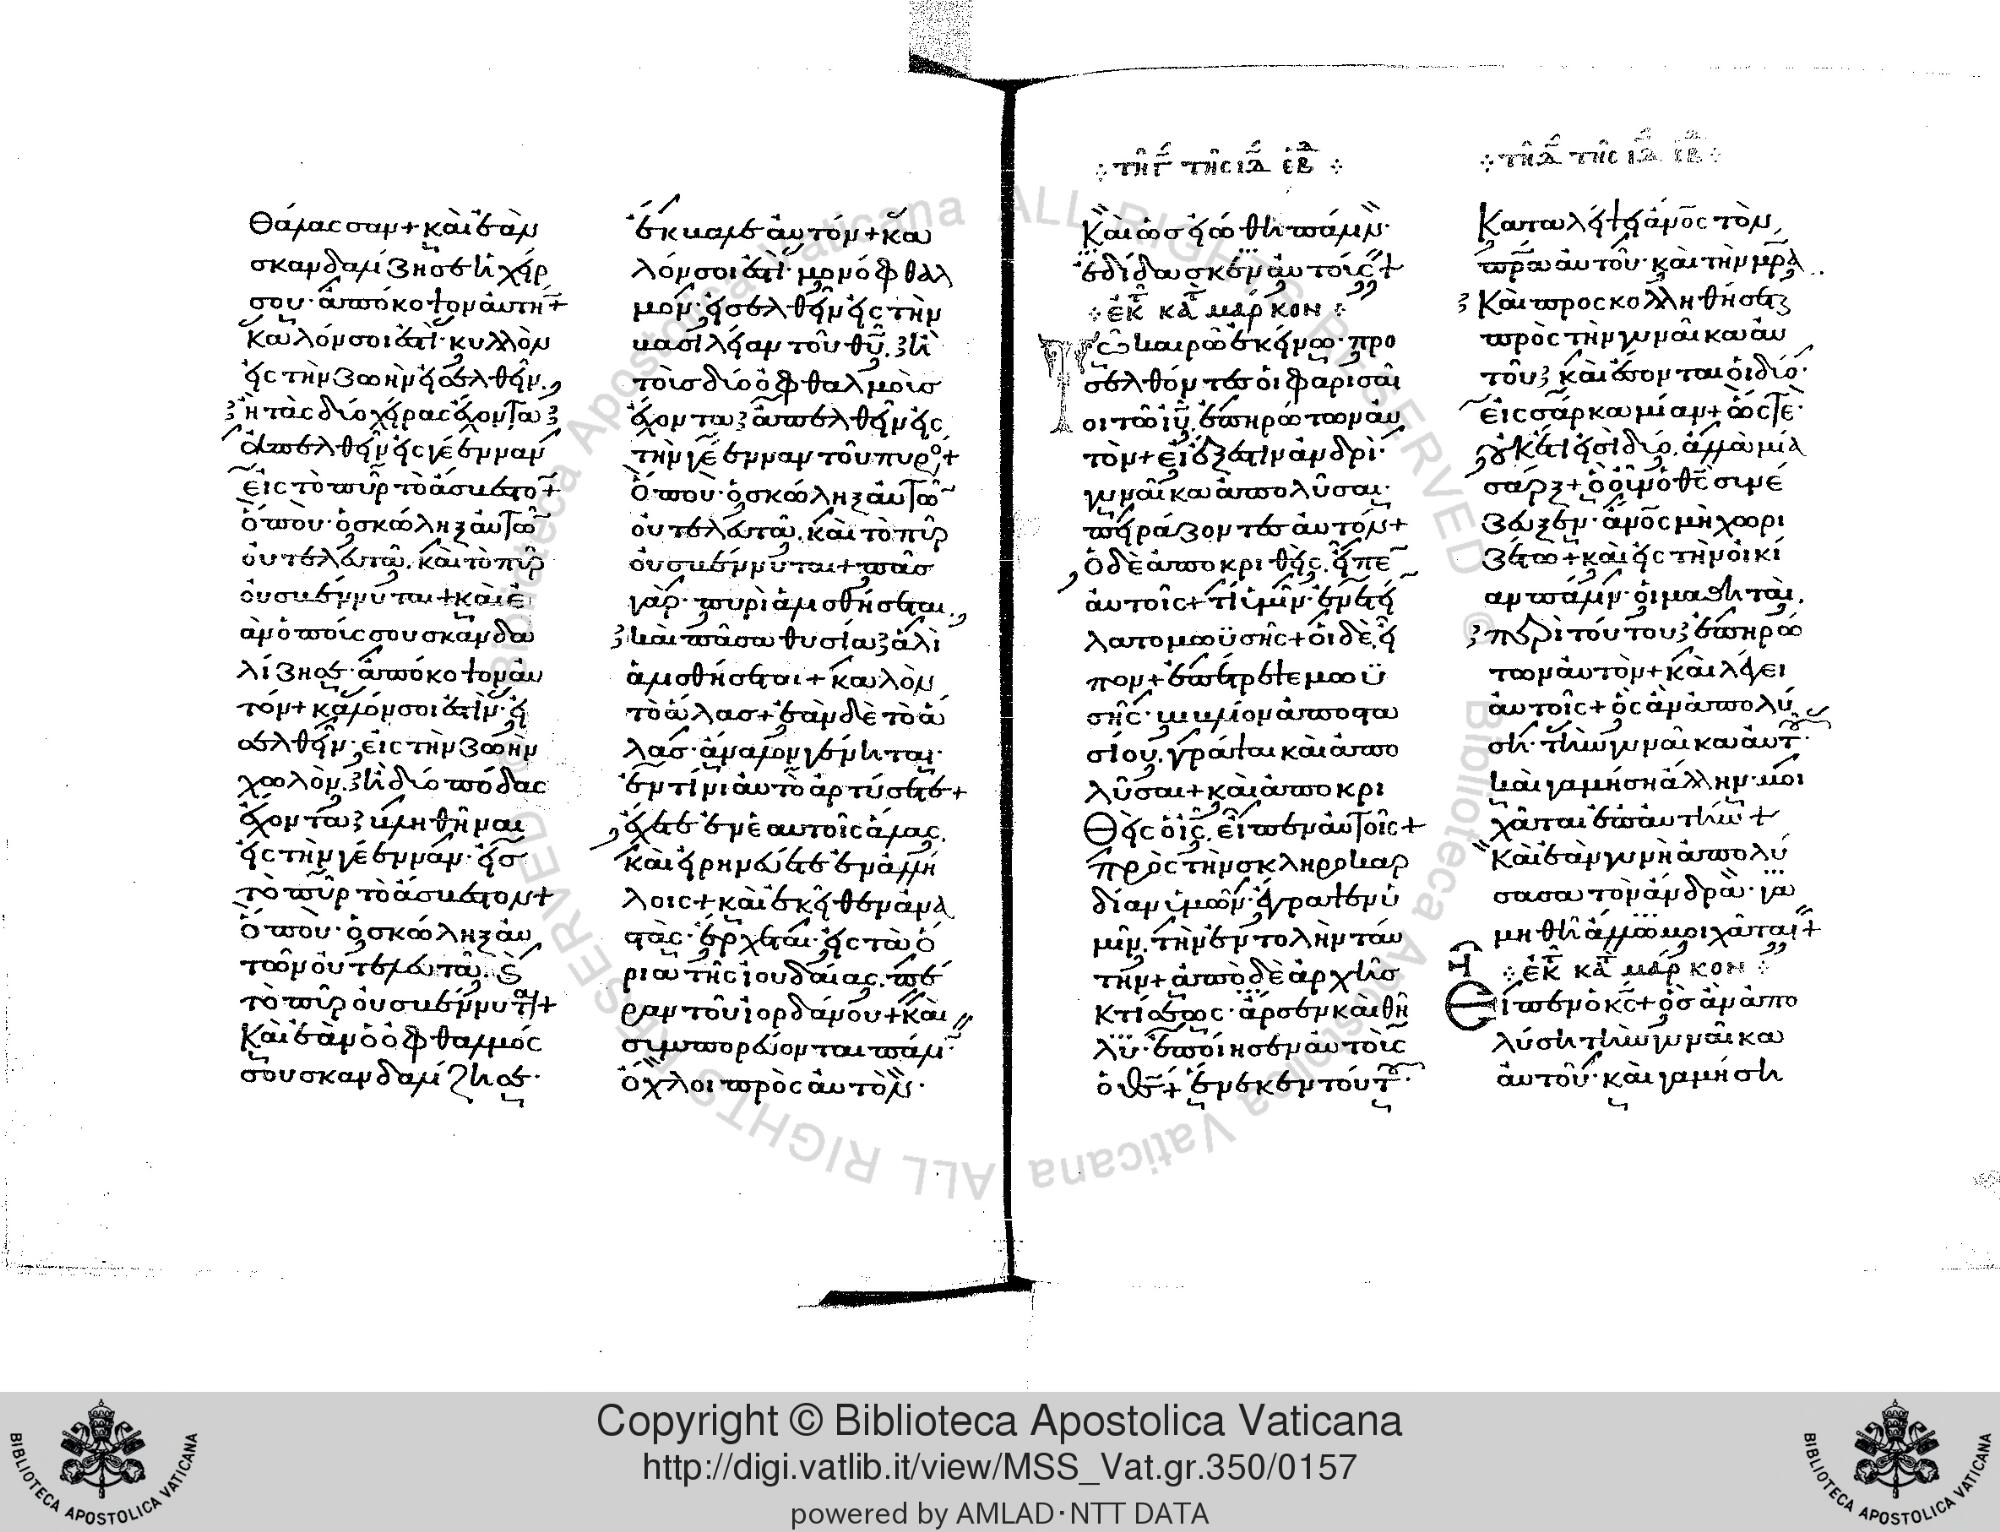 θάλασσαν+ καὶ ἐὰν
σκανδαλίζησϵ ἡ χείρ
σου· ἀπόκοψον αὐτήν+
καλόν σοι ἐστὶ· κυλλὸν
εἰς τὴν ζωὴν εἰσελθεῖν,
ἢ τὰς δύο χεῖρας ἔχοντα
ἀπελθεῖν εἰς γέενναν
εἰς τὸ πῦρ τὸ ἄσβεστον+
ὅπου· ὁ σκώληξ αὐτῶν
οὐ τελευτᾶ, καὶ τὸ πῦρ
οὐ σβέννυται+ καὶ ἐ
ὰν ὁ ποῦς σου σκανδα
λίζη σε· ἀπόκοψον αὐ
τόν+ καλόν σοι ἐστὶν· εἰ
σελθεῖν· εἰς τὴν ζωὴν
χωλὸν, ἢ δύο πόδας
ἔχοντα βληθῆναι
εἰς τὴν γέενναν· εἰσ
τὸ πῦρ τὸ ἄσβεστον+
ὅπου· ὁ σκώληξ αὐ
τῶν οὐ τελευτᾶ, καὶ
τὸ πῦρ οὐ σβέννυται+
Καὶ ἐὰν ὁ ὀφθαλμός
σου σκανδαλίζη σε·
ἔκβαλε αὐτόν+ κα
λόν σοι ἐστὶ· μονόφθαλ
μον· εἰσελθεῖν εἰς τὴν
βασιλείαν τοῦ θυ, ἢ
τοὺς δύο ὀφθαλμοὺσ
ἔχοντα ἀπελθεῖν εἰς
τὴν γέενναν τοῦ πυρός+
Ὅπου· ὁ σκώληξ αὐτῶν
οὐ τελευτᾶ, καὶ τὸ πῦρ
οὐ σβέννυται+ πᾶσ
γὰρ· πυρὶ ἁλισθήσεται,
καὶ πᾶσα θυσία ἁλὶ
ἁλισθήσεται+ καλὸν
τὸ ἅλας+ ἐὰν δὲ τὸ ἅ
λας· ἄναλον γένηται·
ἐν τίνι αὐτὸ ἀρτύσετε+
ἔχετε ἐν ἑαυτοῖς ἅλας,
καὶ εἰρηνεύετε ἐν ἀλλή
λοις+ καὶ ἐκεῖθεν ἀνα
στὰς· ἔρχεται· εἰς τὰ ὅ
ρια τῆς ἰουδαίας, πέ
ραν τοῦ ἰορδάνου+ καὶ
συμπορεύονται πάλιν
ὄχλοι πρὸς αὐτὸν·
τῆ γ τῆς ιδ ἑβ
Καὶ ὡς εἰώθει πάλιν·
ἐδίδασκεν αὐτούς+
ἐκ κατὰ μάρκον
Τῶ καιρῶ ἐκείνω· προ
σελθόντες οἱ φαρισαῖ
οι τῶ ιυ, ἐπηρώτων αὐ
τὸν+ εἰ ἔξεστιν ἀνδρὶ·
γυναῖκα ἀπολῦσαι·
πειράζοντες αὐτόν+
Ὁ δὲ ἀποκριθεὶς, εἶπεν
αὐτοῖς+ τί ὑμῖν· ἐνετεί
λατο μωϋσῆς+ οἱ δὲ, εἶ
πον+ ἐπέτρεψε μωϋ
σῆς· βιβλίον ἀποστα
σίου, γράψαι καὶ ἀπο
λῦσαι+ καὶ ἀποκρι
Θεὶς ὁ ις, εἶπεν αὐτοῖς+
πρὸς τὴν σκληροκαρ
δίαν ὑμῶν· ἔγραψεν ὑ
μῖν, τὴν ἐντολὴν ταύ
την+ ἀπὸ δὲ ἀρχῆσ
κτίσεως· ἄρσεν καὶ θῆ
λυ· ἐποίησεν αὐτοὺς
ὁ θς+ ἕνεκεν τούτου·
τῆ δ τῆς ιδ ἑβ
Καταλείψει ἄνος τὸν
πρα αὐτοῦ· καὶ τὴν μρα,
Καὶ προσκολληθήσεται
πρὸς τὴν γυναῖκα αὐ
τοῦ, καὶ ἔσονται οἱ δύο·
εἰς σάρκα μίαν+ ὥστε·
οὐκέτι εἰσὶ δύο, ἀλλὰ μία
σάρξ+ ὃ οὖν ὁ θς συνέ
ζευξεν· ἄνος μὴ χωρι
ζέτω+ καὶ εἰς τὴν οἰκί
αν πάλιν· οἱ μαθηταὶ,
περὶ τούτου ἐπηρώ
των αὐτὸν+ καὶ λέγει
αὐτοῖς+ ὃς ἂν ἀπολύ
ση· τὴν γυναῖκα αὐτοῦ
καὶ γαμήση ἄλλην· μοι
χᾶται ἐπ' αὐτὴν+
Καὶ ἐὰν γυνὴ ἀπολύ
σασα τὸν ἄνδρα· γα
μηθῆ ἄλλω μοιχᾶται+
ἐκ κατὰ μάρκον
Εἶπεν ὁ κς+ ὃσ ἂν ἀπο
λύση τὴν γυναῖκα
αὐτοῦ· καὶ γαμήση
ALL RIGHTS RESERVED © Biblioteca Apostolica Vaticana ALL RIGHTS RESERVED © Biblioteca Apostolica Vaticana
Copyright © Biblioteca Apostolica Vaticana
http://digi.vatlib.it/view/MSS_Vat.gr.350/0157
powered by AMLAD·NTT DATA
BIBLIOTECA APOSTOLICA VATICANA
BIBLIOTECA APOSTOLICA VATICANA